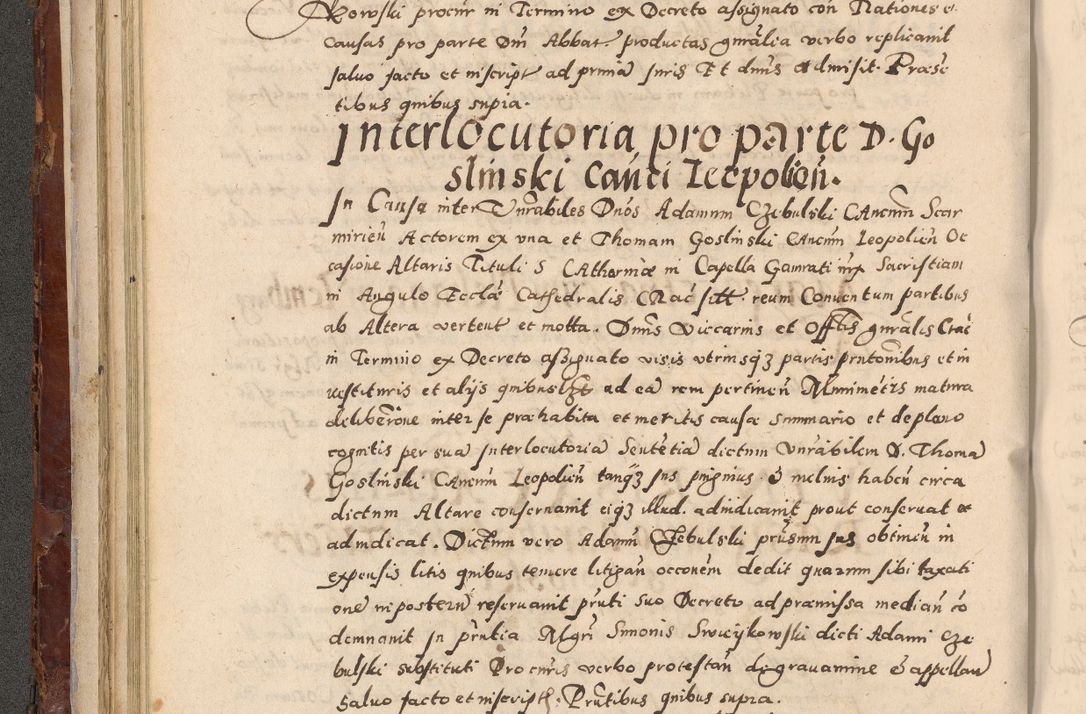 kowski procur in Termino ex Decreto assignato con Rationes et
causas pro parte Dni Abbat. productas gnralia verbo replicavit
salvo facto et inscript ad prima Juris Et dnus admisit. Præse
tibus quibus supra.
Interlocutoria pro parte D. Go
slinski Canci Leopolien.
In Causa inter Vnrabiles Dnos Adamum Czebulski CAncum Scar
mirien Actorem ex una et Thomam Goslinski CAncum Leopolien Oc
casione Altaris Tituli S CAtherinæ in Capella Gamrati Sacristiam
in Angulo Eccla Cathedralis CRac sitt. reum Conventum partibus
ab Altera vertent et motta. Dnus Viccarius et Offtis gnralis Crac
in Termino ex Decreto assignato visis utriusq3 partis prntonibus et in
vestituris et alijs quibus ad ea rem pertinen Munimetis matura
deliberone inter se præhabita et meritis causæ summario et de plano
cognitis per sua Interlocutoria Sentetia dictum Vnrabilem D. Thoma
Goslinski CAncum Leopolien tanq3 Jus pinguius & melius haben circa
dictum Altare conservavit eiq3 illud. adiudicavit prout conservat et
adiudicat. Dictum vero Adamu Czebulski priusmn jus obtinen in
expensis litis quibus temere litigan occonem dedit quarum sibi taxati
one in posteru reservavit pruti suo Decreto ad præmissa median co
demnavit In prntia Mgri Simonis Swieykowski dicti Adami Cze
bulski substituti Procuris verbo protestan de gravamine & appellan
salvo facto et inscript. Prntibus quibus supra.